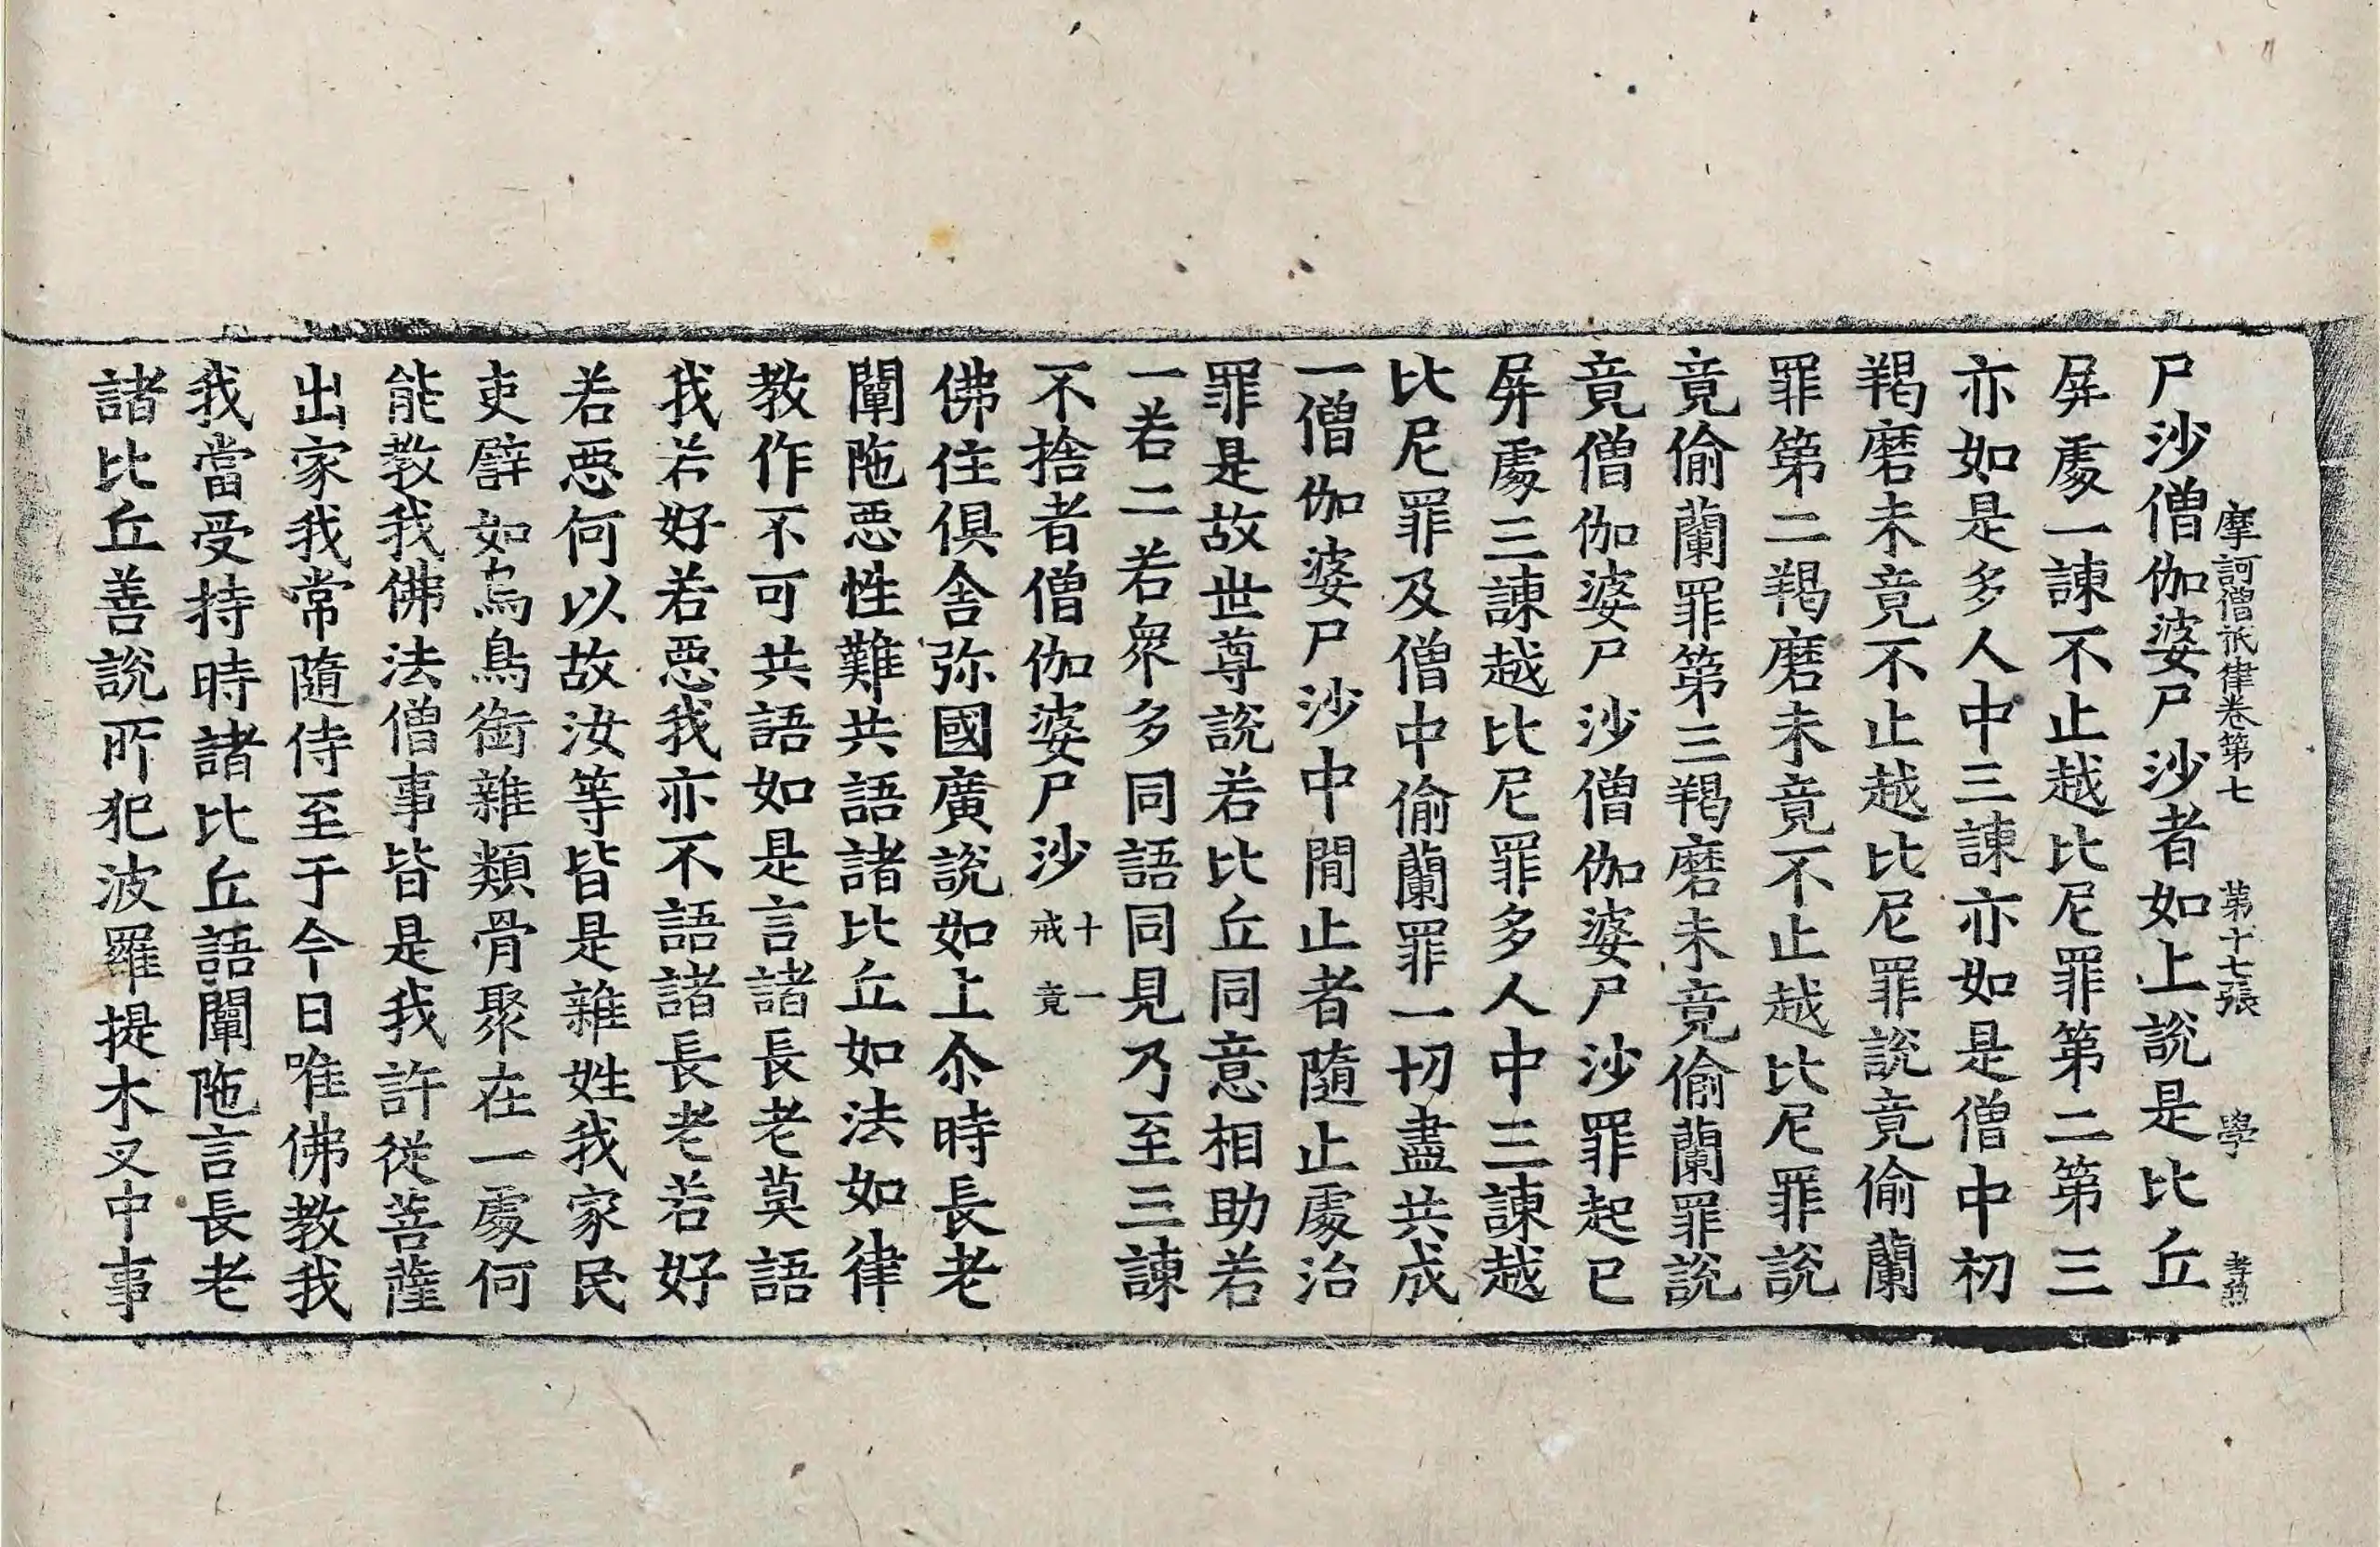 摩訶僧祇律卷第七 第十七張 學
尸沙僧伽婆尸沙者如上說是比丘
屏處一諫不止越比尼罪第二第三
亦如是多人中三諫亦如是僧中初
羯磨未竟不止越比尼罪說竟偷蘭
罪第二羯磨未竟不止越比尼罪說
竟偷蘭罪第三羯磨未竟偷蘭罪說
竟僧伽婆尸沙僧伽婆尸沙罪起已
屏處三諫越比尼罪多人中三諫越
比尼罪及僧中偷蘭罪一切盡共成
一僧伽婆尸沙中間止者隨止處治
罪是故世尊說若比丘同意相助若
一若二若衆多同語同見乃至三諫
不捨者僧伽婆尸沙 十一戒竟
佛住俱舍弥國廣說如上尒時長老
闡陁惡性難共語諸比丘如法如律
教作不可共語如是言諸長老莫語
我若好若惡我亦不語諸長老若好
若惡何以故汝等皆是雜姓我家民
吏譬如烏鳥銜雜類骨聚在一處何
能教我佛法僧事皆是我許從菩薩
出家我常隨侍至于今日唯佛教我
我當受持時諸比丘語闡陁言長老
諸比丘善說所犯波羅提木叉中事